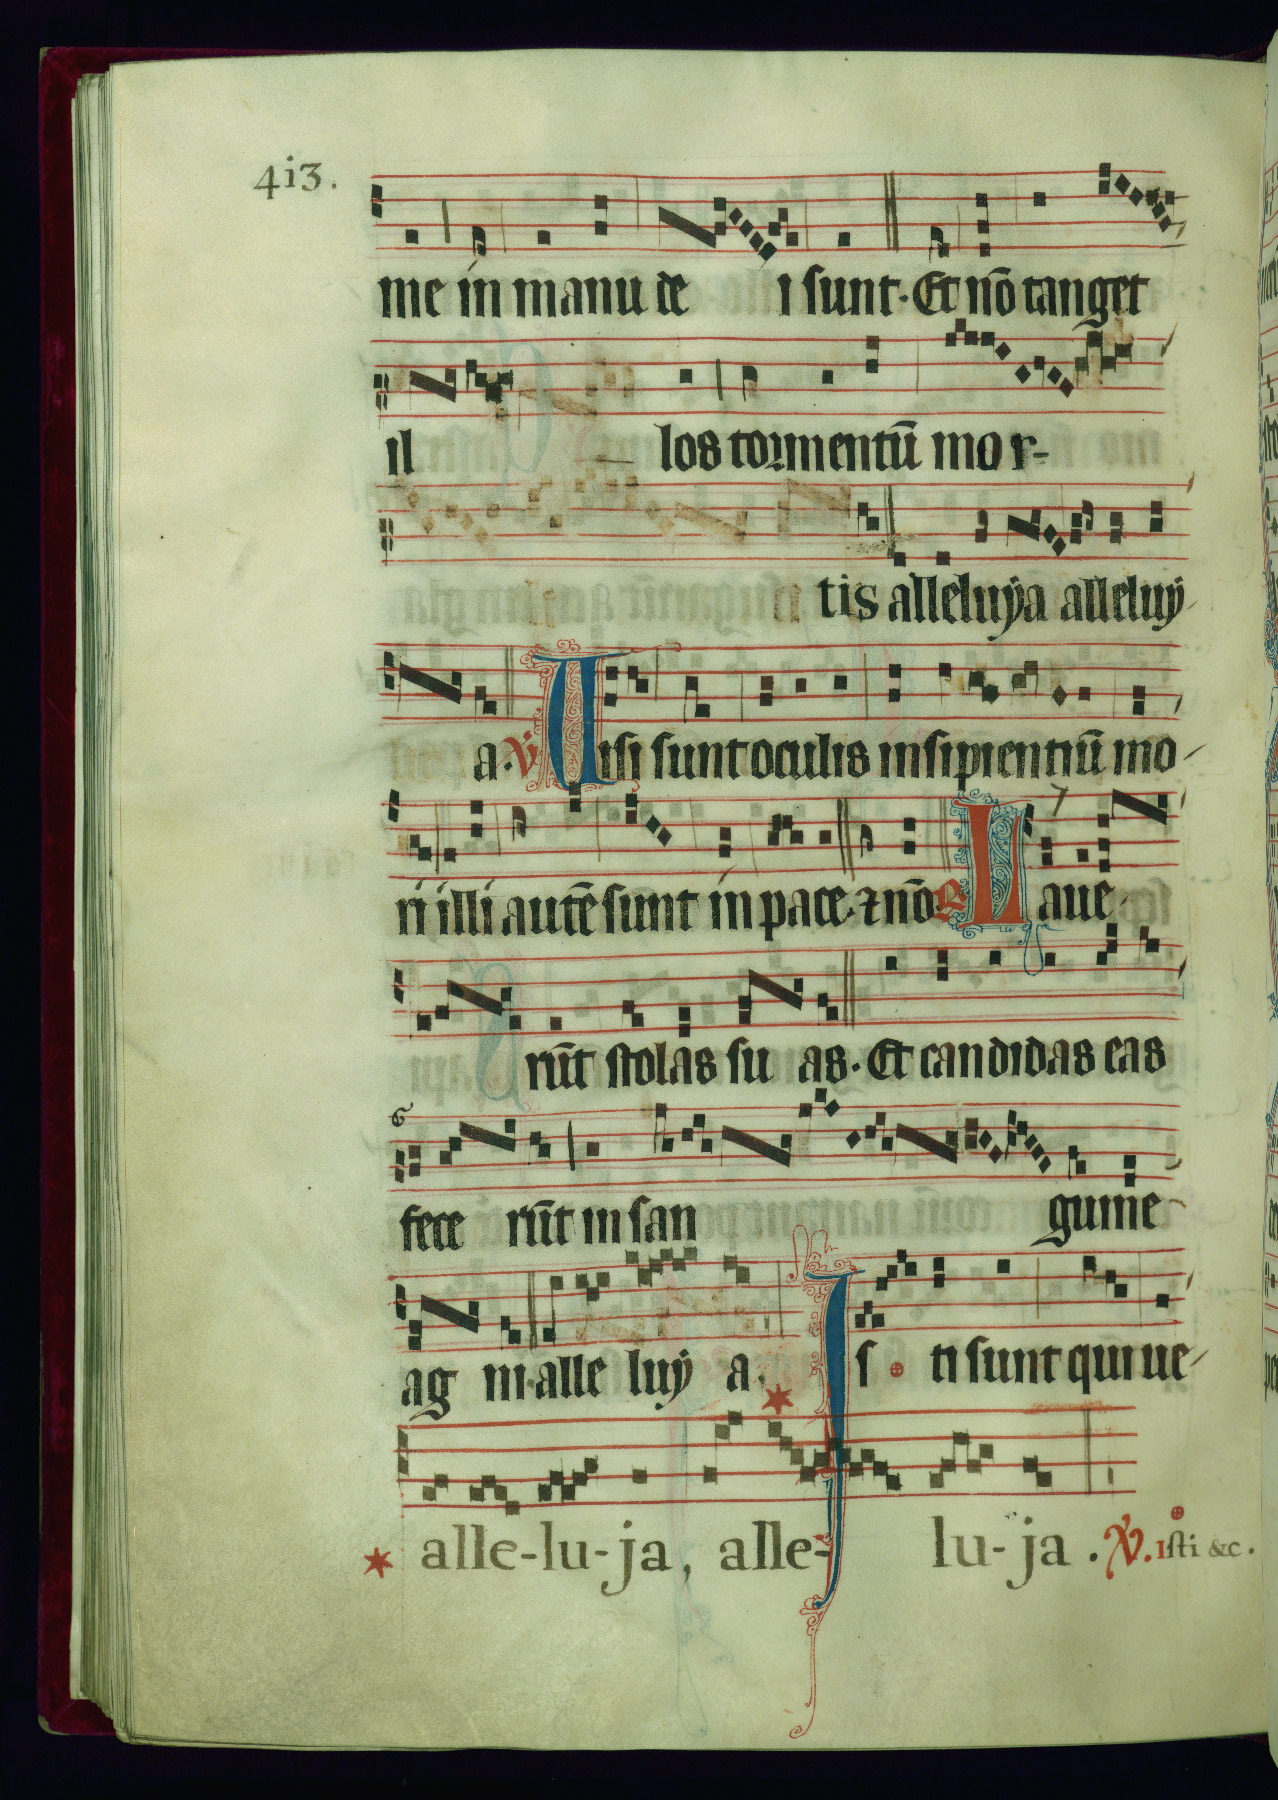 4i3.
me in manu de i sunt. Et nō tanget
il los tormentū mor-
tis alleluÿa alleluÿ
a. V̇ Uisi sunt oculis insipientiū mo
ri illi autē sunt in pace. ⁊ nō R Laue
rūt stolas su as. Et candidas eas
fece rūt in san guine
ag ni. alle luÿ a. Is ti sunt qui ue
alle-lu-ja, alle- lu-ja. V̇. isti &c.